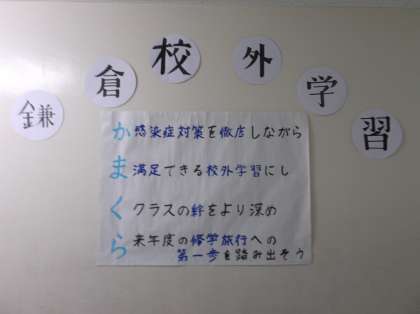 鎌倉校外学習
か 感染症対策を徹底しながら
ま 満足できる校外学習にし
く クラスの絆をより深め
ら 来年度の修学旅行への
第一歩を踏み出そう